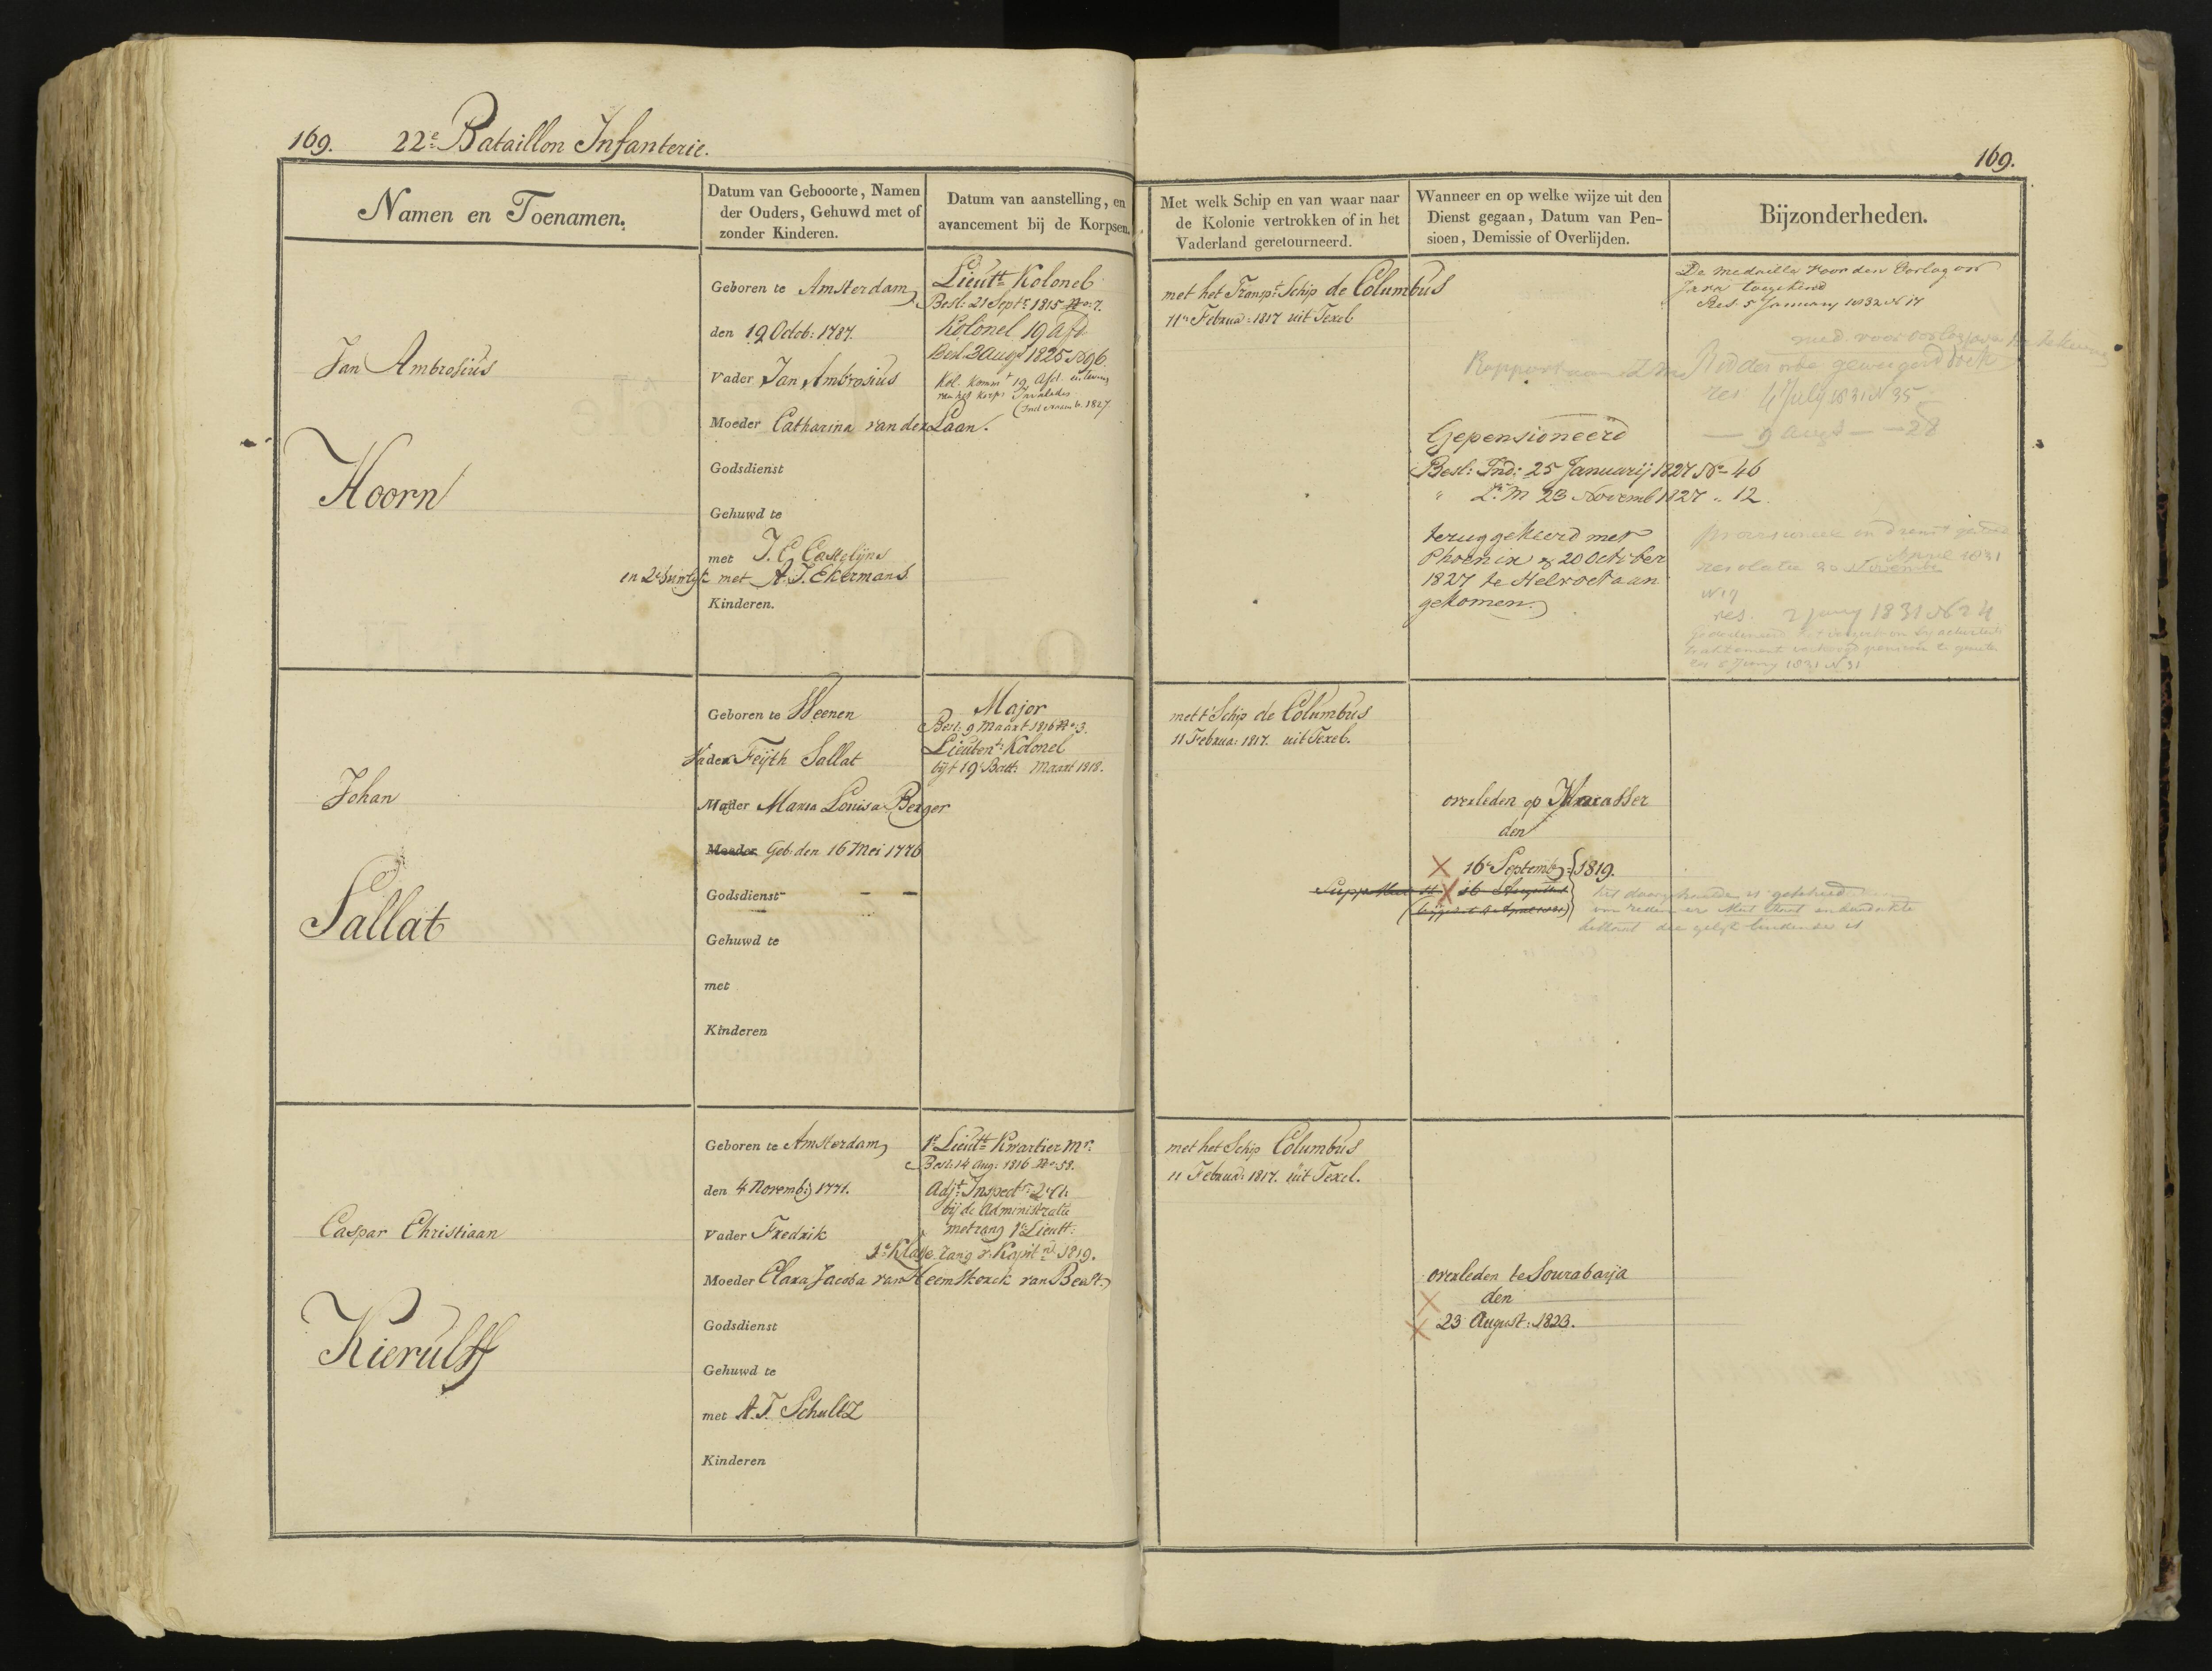 169. 22e Bataillon Infanterie.
169.
Namen en Toenamen.
Datum van Gebooorte, Namen
der Ouders, Gehuwd met of
zonder Kinderen.
Datum van aanstelling, en
avancement bij de Korpsen.
Met welk Schip en van waar naar
de Kolonie vertrokken of in het
Vaderland geretourneerd.
Wanneer en op welke wijze uit den
Dienst gegaan, Datum van Pen-
sioen, Demissie of Overlijden.
Bijzonderheden.
Jan Ambrosius
Hoorn
Geboren te Amsterdam
den 19 Octob: 1787.
Vader Jan Ambrosius
Moeder Catharina van der Laan.
Godsdienst
Gehuwd te
met J. C. Castelijns
en 2e huwlijk met A. J. Ekermans
Kinderen.
Lieutt Kolonel
Besl: 21 Septr 1815 No. 7.
Kolonel 19 Afd
Besl. 3 Augs 1825 No 96
Kol. Komm t 19 Afd. en tevens
van het Korps Invalides
1827
met het Transpt Schip de Columbus
11n Februa: 1817 uit Texel
Gepensioneerd
Besl: Ind: 25 Januarij 1827 No 46
" La M 23 Novemb 1827 " 12.
teruggekeerd met
Phoenix 20 October
1827 te Helvoet aan
gekomen.
De medaille voor den Oorlog op
Java toegekend
Res. 5 January 1832 N 17
med. voor oorlog Java
Rapport aan
Ridder orde geweigerd
res 4 July 1831 N 35
— 9 Augs — — 28
in dienst
April 1831
resolutie 30 November
N 17
res. 2 Juny 1831 N 24
res 8 Juny 1831 N 31
Johan
Sallat
Geboren te Weenen
Vader Feijth Sallat
Moeder Maria Louisa Berger
Moeder Geb. den 16 Mei 1776
Godsdienst — —
Gehuwd te
met
Kinderen
Major
Besl: 9 Maart 1816 No. 3.
Lieutent: Kolonel
bijt 19e Batt: Maart 1818.
met t' Schip de Columbus
11 Februa: 1817. uit Texel.
overleden op Maccasser
den
16e Septemb: 1819.
16 Augustus
Caspar Christiaan
Kierulff
Geboren te Amsterdam
den 4 Novemb 1771.
Vader Fredrik
Moeder Clara Jacoba van Heemskerck van Beest.
Godsdienst
Gehuwd te
met A. J. Schultz
Kinderen
1e Lieutt Kwartier Mr.
Besl: 14 Aug: 1816 No. 58.
Adjt Inspectr 2e Cl:
bij de Administratie
met rang 1e Lieutt:
1e Klasse rang v. Kapitn 1819.
met het Schip Columbus
11 Februa: 1817. uit Texel.
overleden te Sourabaija
den
23 August: 1823.